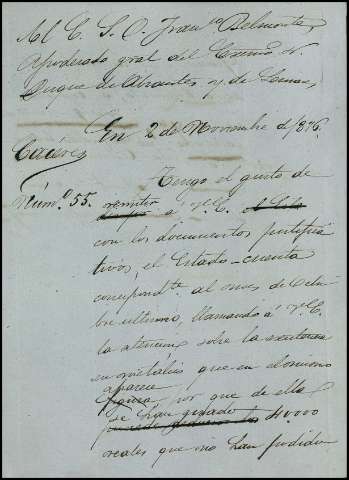 Al E. S. D. Franco Belmonte,
Apoderado gral del Excmo S.
Duque de Abrantes y de Linares,
En 2 de Noviembre d/876.
Cáceres
Núm.º 55.
Tengo el gusto de
remitir a V.E.
con los documentos justifica
tivos, el Estado-cuenta
correspondte. al mes de Octu
bre último, llamando a V.E.
la atencion sobre la
en metálico que en
aparece
por que de ella
se han girado
40.000
reales que no han podido